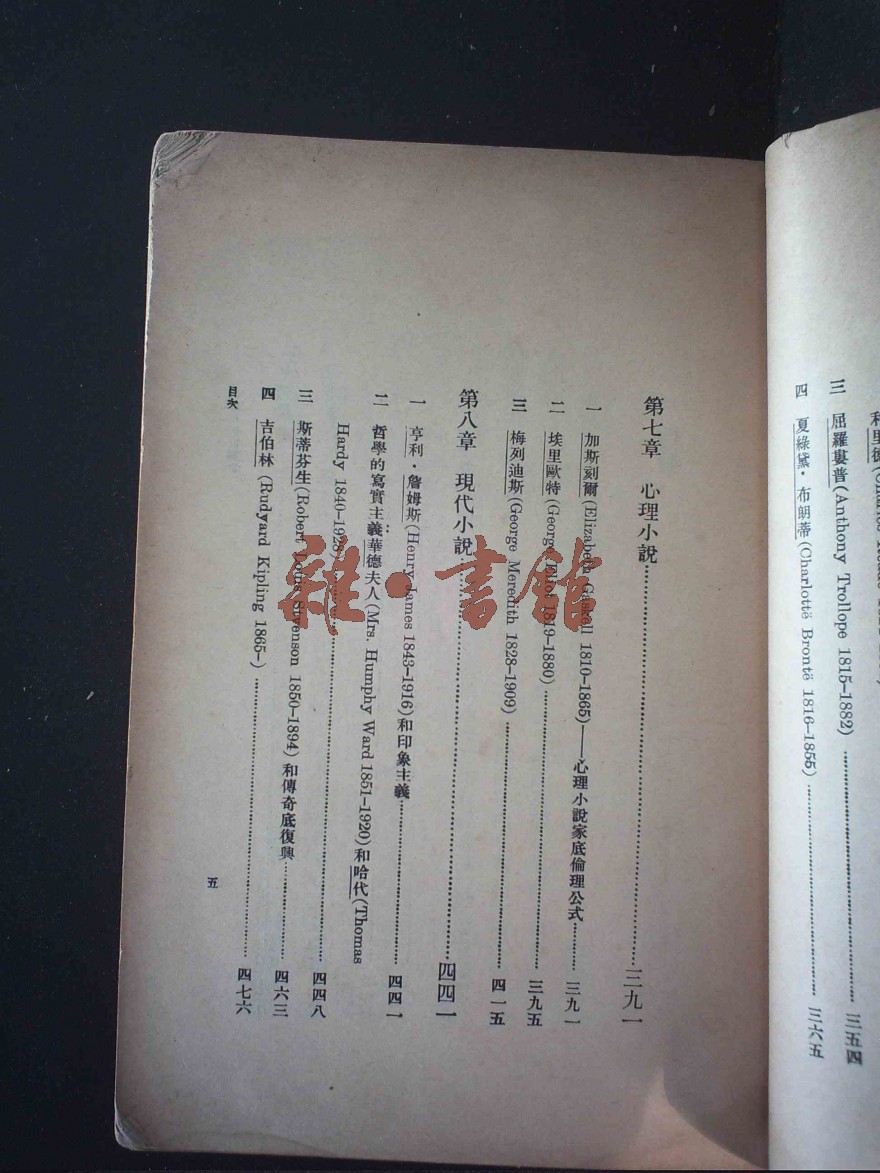 利里德(Charles Reade
三 屈羅婁普(Anthony Trollope 1815–1882)……三五四
四 夏綠黛·布朗蒂(Charlottë Brontë 1816–1855)……三六五
第七章 心理小說……三九一
一 加斯刻爾(Elizabeth Gaskell 1810–1865)——心理小說家底倫理公式……三九一
二 埃里歐特(George Eliot 1819–1880)……三九五
三 梅列迪斯(George Meredith 1828–1909)……四一五
第八章 現代小說……四四一
一 亨利·詹姆斯(Henry James 1843–1916)和印象主義……四四一
二 哲學的寫實主義:華德夫人(Mrs. Humphy Ward 1851–1920)和哈代(Thomas
Hardy 1840–1928)……四四八
三 斯蒂芬生(Robert Louis Stvenson 1850–1894)和傳奇底復興……四六三
四 吉伯林(Rudyard Kipling 1865–)……四七六
目次
五
雜·書館